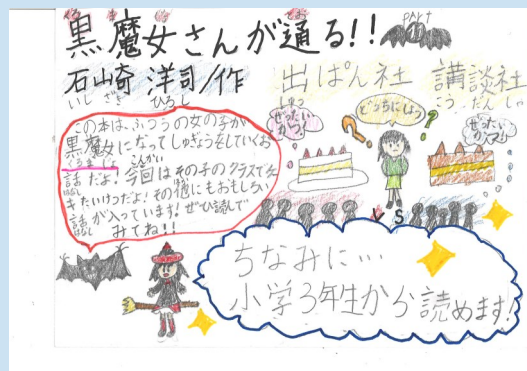 黒魔女さんが通る!!
PART 11
石山崎 洋司/作
いし ざき ひろし
出ぱん社 講談社
しゅっ こう だん しゃ
この本は、ふつうの女の子が
黒魔女になってしゅぎょうをしていくお
くろまじょ
話だよ!今回はその子のクラスで大
はなし こんかい
きたいけつだよ!その他にもおもしろい
話が入っています!ぜひ読んで
はなし
みてね!!
ぜったいかつ!
どっちにしよう
ぜったいかつ!!
VS
ちなみに…
小学3年生から読めます!